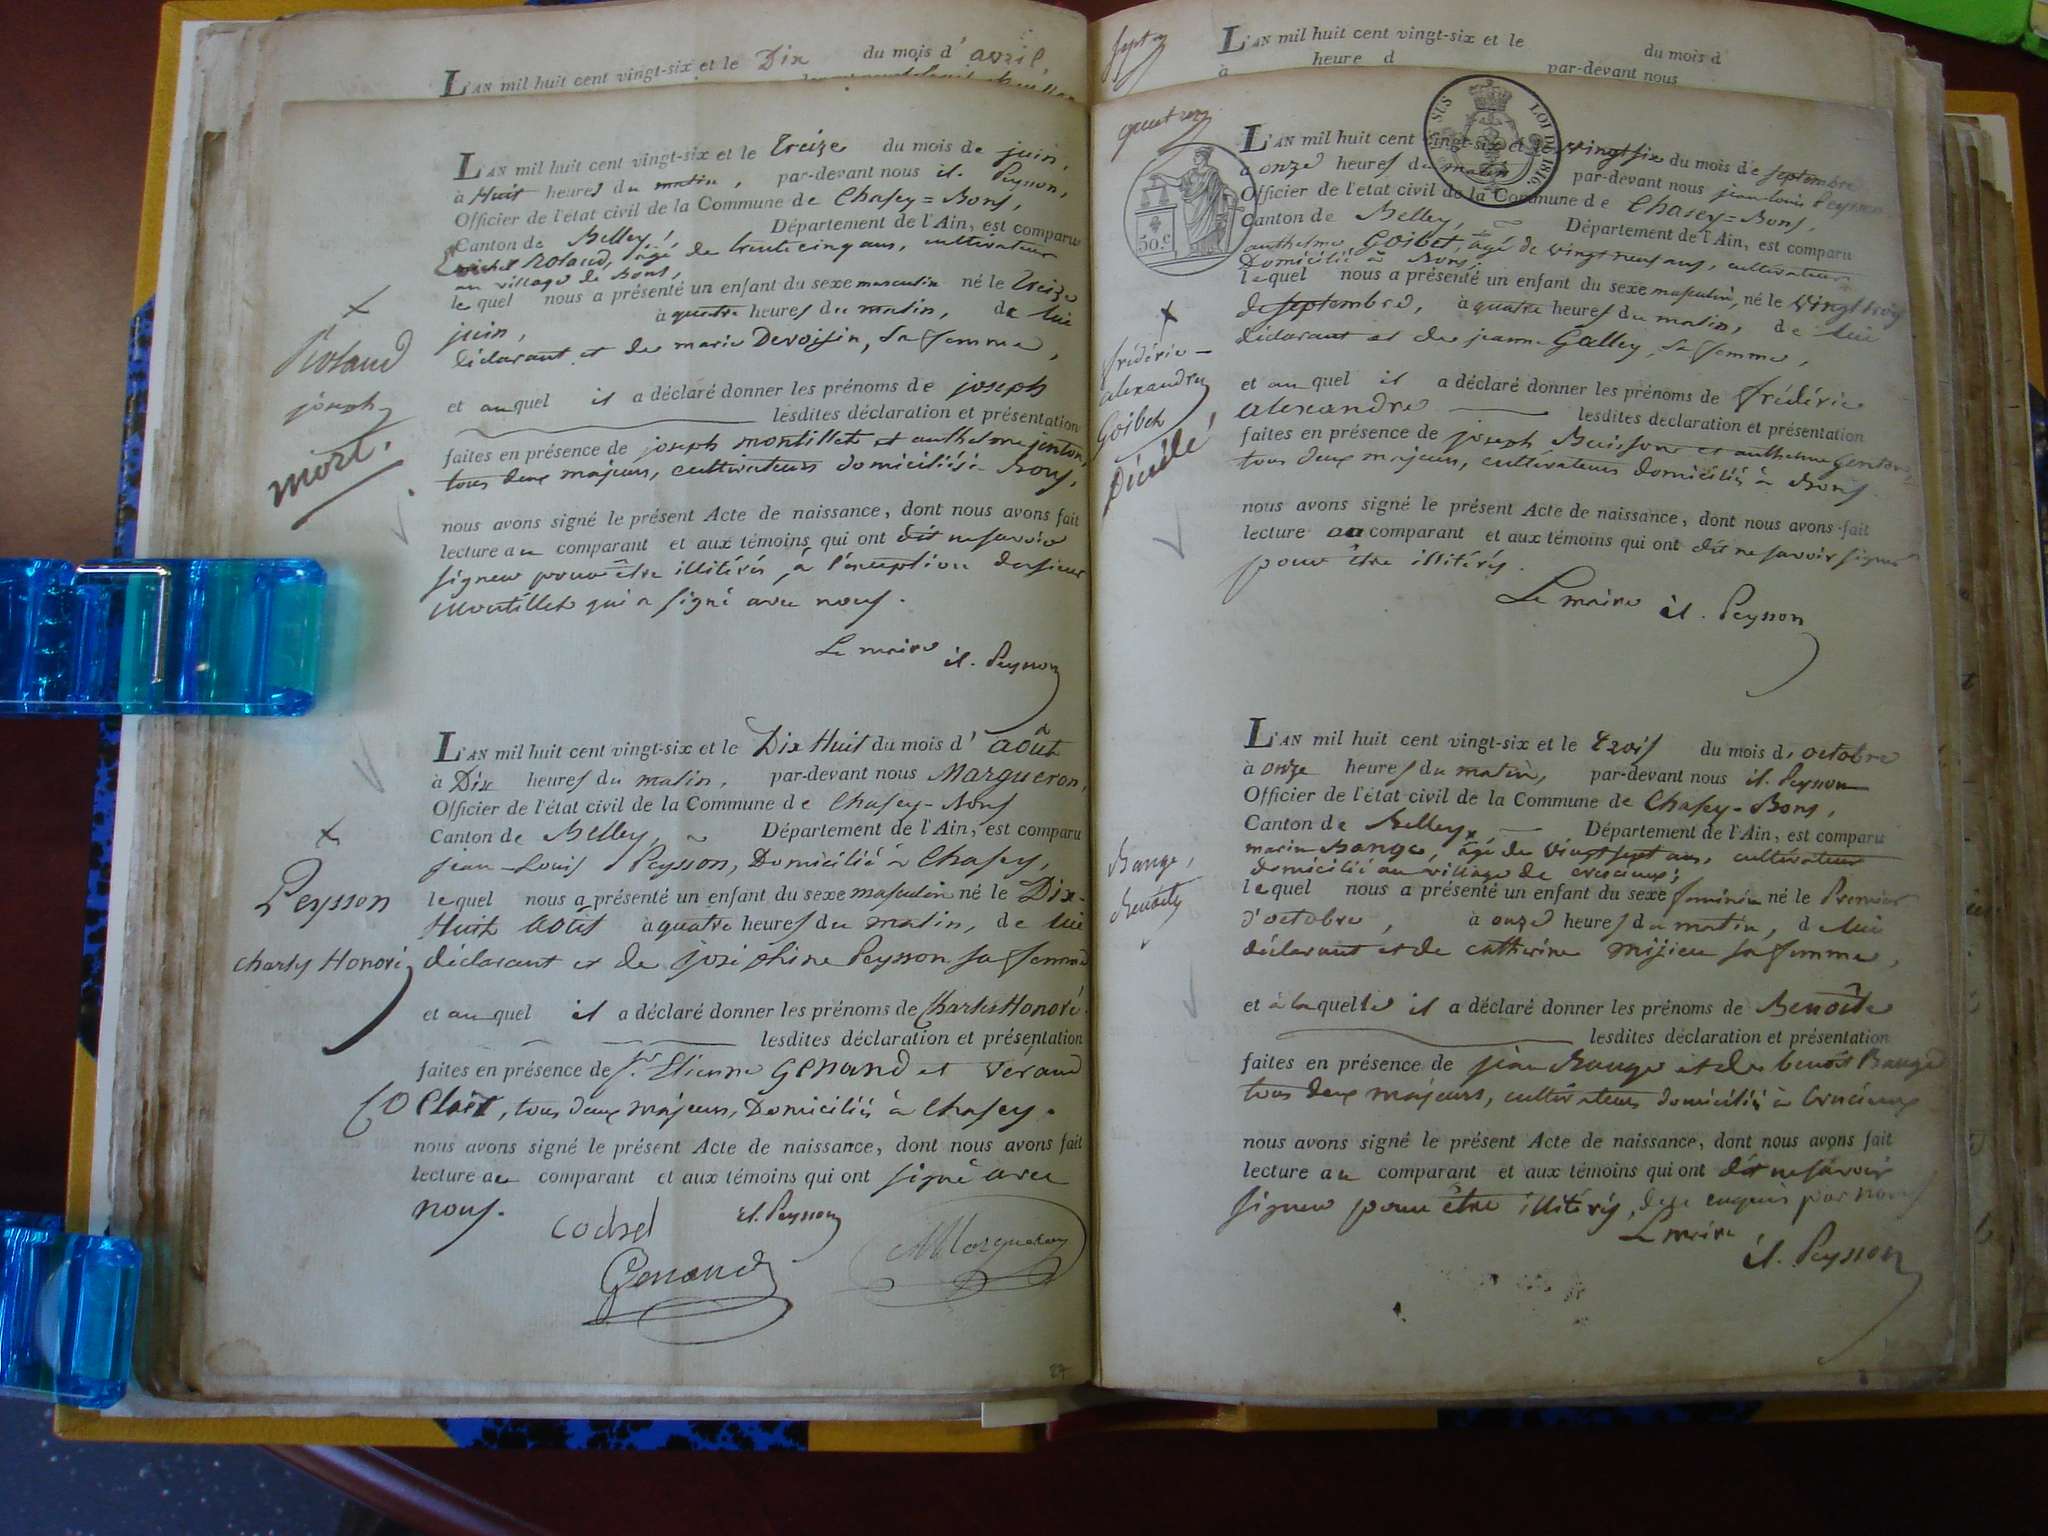 L'AN mil huit cent vingt-six et le Dix du mois d'avril,
L'AN mil huit cent vingt-six et le treize du mois de juin,
à Huit heures du matin, par-devant nous il. Peysson,
Officier de l'état civil de la Commune de Chasey=Bons,
Canton de Belley, Département de l'Ain, est comparu
michel Roland, âgé de trente cinq ans, cultivateur
au village de Bons,
lequel nous a présenté un enfant du sexe masculin né le treize
juin, à quatre heures du matin, de lui
déclarant et de marie Devoisin, sa femme,
et auquel il a déclaré donner les prénoms de joseph
lesdites déclaration et présentation
faites en présence de joseph montillet et anthelme jenton,
tous deux majeurs, cultivateurs domiciliés à Bons,
nous avons signé le présent Acte de naissance, dont nous avons fait
lecture au comparant et aux témoins qui ont dit ne savoir
signer pour être illitérés, à l'exception du sieur
Montillet qui a signé avec nous.
Le maire il. Peysson
+
Roland
joseph
mort.
L'AN mil huit cent vingt-six et le Dix Huit du mois d'août
à Dix heures du matin, par-devant nous Margueron,
Officier de l'état civil de la Commune de Chasey-Bons
Canton de Belley, Département de l'Ain, est comparu
jean-Louis Peysson, Domicilié à Chasey,
lequel nous a présenté un enfant du sexe masculin né le Dix-
Huit Août à quatre heures du matin, de lui
déclarant et de joséphine Peysson sa femme
et auquel il a déclaré donner les prénoms de Charles Honoré
lesdites déclaration et présentation
faites en présence de Sr. Etienne Genand et
tous deux majeurs, Domiciliés à Chasey.
nous avons signé le présent Acte de naissance, dont nous avons fait
lecture au comparant et aux témoins qui ont signé avec
nous.
il. Peysson
Genand
Margueron
+
Peysson
Charles Honoré
27
L'AN mil huit cent vingt-six et le du mois d
à heure d par-devant nous
quatorze
SUS LOI DE 1816.
50.c
L'AN mil huit cent vingt-six et le vingt six du mois de septembre
à onze heures du matin par-devant nous jean-louis Peysson
Officier de l'état civil de la Commune de Chasey=Bons,
Canton de Belley, Département de l'Ain, est comparu
anthelme Goibet, âgé de vingt neuf ans, cultivateur
Domicilié à Bons.
lequel nous a présenté un enfant du sexe masculin, né le vingt trois
de septembre, à quatre heures du matin, de lui
déclarant et de jeanne Galley, sa femme,
et auquel il a déclaré donner les prénoms de frédéric
alexandre lesdites déclaration et présentation
faites en présence de joseph Buisson et anthelme Genton
tous deux majeurs, cultivateurs domiciliés à Bons
nous avons signé le présent Acte de naissance, dont nous avons fait
lecture au comparant et aux témoins qui ont dit ne savoir signer
pour être illitérés.
Le maire il. Peysson
+
frédéric-
alexandre
Goibet
Décédé
L'AN mil huit cent vingt-six et le trois du mois d'octobre
à onze heures du matin, par-devant nous il. Peysson
Officier de l'état civil de la Commune de Chasey-Bons,
Canton de Belley, Département de l'Ain, est comparu
marin Bange, âgé de vingt sept ans, cultivateur
domicilié au village de
lequel nous a présenté un enfant du sexe féminin né le Premier
d'octobre, à onze heures du matin, de lui
déclarant et de catherine mijieu sa femme,
et à laquelle il a déclaré donner les prénoms de Benoîte
lesdites déclaration et présentation
faites en présence de jean Bange et de benoît Bange
tous deux majeurs, cultivateurs domiciliés à
nous avons signé le présent Acte de naissance, dont nous avons fait
lecture au comparant et aux témoins qui ont dit ne savoir
signer pour être illitérés, de ce enquis par nous
Le maire
il. Peysson
Bange,
Benoîte